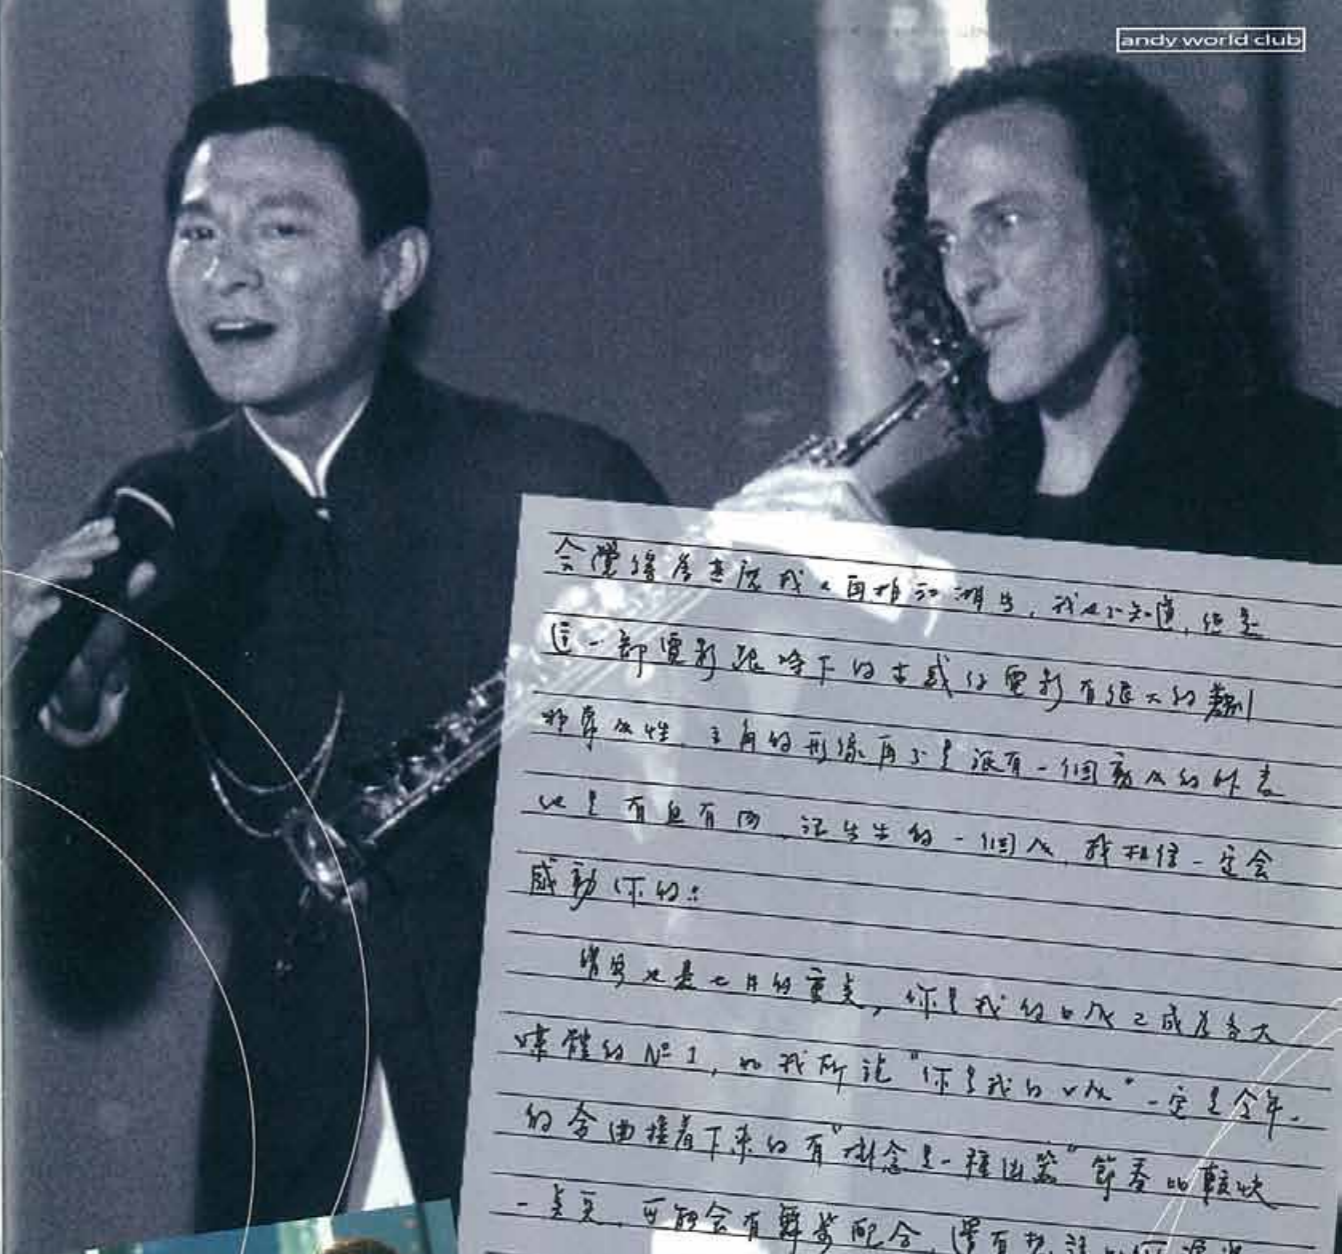 andy world club
會覺得為甚麼我又再拍江湖片,我也不知道,但是
這一部電影跟時下的古惑仔電影有很大的差別
非常人性,主角的形像再不是祇有一個動人的外表
他是有血有肉、活生生的一個人,我相信一定会
感動你的:
情是七月的重点,你是我的女人已成為各大
媒體的 Nº 1,如我所說"你是我的女人"一定是今年
的金曲接着下來的有"掛念是一種凶器"節奏比較快
一点,可能会有舞蹈配合,還有